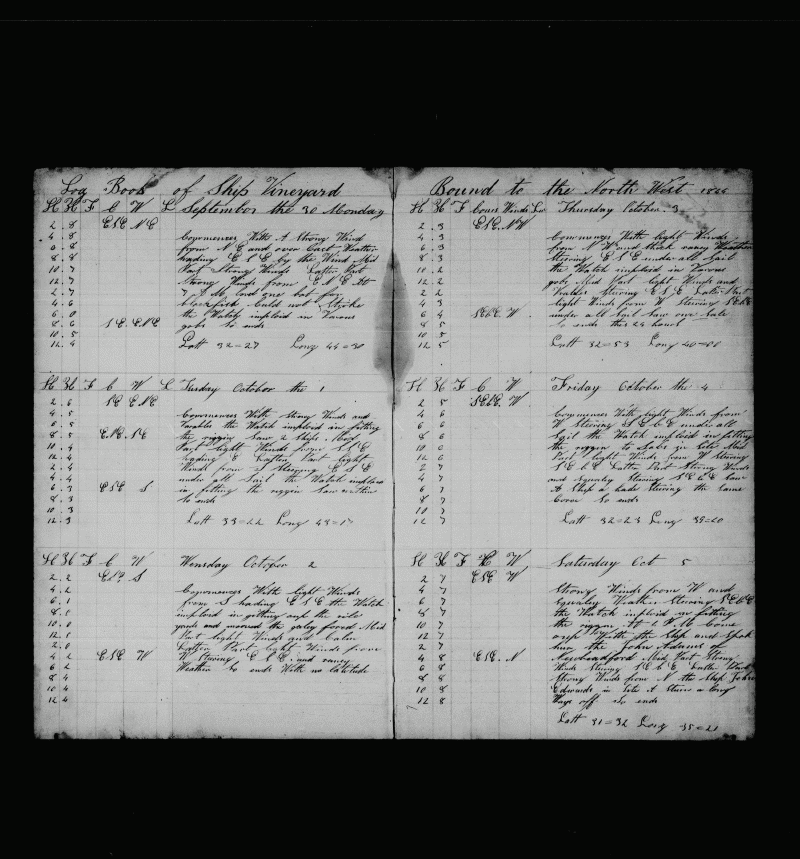 Log Book of Ship Vineyard
H K F C W L September the 30 Monday
2 8 ESE NE
4 8 Commences With A Strong Wind
from NE and over Cast Weather
8 8 heading ESE by the Wind Mid
10 7 Part Strong Winds Latter Part
12 7 Strong Winds from ENE At
2 7
4 6 blackfish Could not Strike
6 0 the Watch imploid in Varous
8 6 SE ENE jobs So ends
10 5
12 4 Latt 32=27 Long 44=30
H K F C W L Tuesday October the 1
2 6 SE ENE
4 5 Commences With Strong Winds and
6 5 the Watch imploid in fitting
8 5 the riggin Saw 2 Ships Mid
10 4 Part light Winds from
12 4 heading E Latter Part light
2 4 Winds from S Steering ESE
4 4 under all Sail the Watch imploid
6 3 ESE S in fitting the riggin Saw
8 3 So ends
10 3
12 3 Latt 33=22 Long 43=17
H K F C W Wensday October 2
2 2 S
4 2 Commences With light Winds
6 1 from S heading ESE the Watch
8 imploid in gitting onp the
10 0 yards and the forod Mid
12 Part light Winds and Calm
2 0 Latter Part light Winds from
4 2 ESE W W Steering ESE and raney
6 2 Weather So ends With no latitude
8 4
10 4
12 4
Bound to the North West
H K F Cours Winds Thursday October 3
2 3 ESE NW
4 3 Commences With light Winds
6 3 from NW and thick raney Weather
8 3 Steering ESE under all Sail
10 2 the Watch imploid in Varous
12 2 jobs Mid Part light Winds and
2 2 Weather Steering ESE Latter Part
4 3 light Winds from W Steering SEbE
6 4 SEbE W under all Sail Saw one Sale
8 5 So ends this 24 hours
10 6
12 5 Latt 32=53 Long 40=00
H K F C W Friday October the 4
2 5 SEbE W
4 6 Commences With light Winds from
6 6 W Steering SEbE under all
8 6 Sail the Watch imploid in fitting
10 6 the riggin Mid
12 6 Part light Winds from W Steering
2 7 SEbE Latter Part Strong Winds
4 7 and Squaley Steering SEbE Saw
6 7 A Ship a head Steering the Same
8 7 Corse So ends
10 7
12 7 Latt 32=23 Long 39=20
H K F C W Saturday Oct 5
2 7 ESE W
4 7 Strong Winds from W and
6 7 Squaley Weather Steering SEbE
8 7 the Watch imploid in fitting
10 7 the riggin At 2 PM Come
12 7 onp With the Ship and Spok
2 7 hur the John Adams of
4 8 ESE N Newbadford Mid Part Strong
6 8 Winds Steering SEbE Latter Part
8 8 Strong Winds from N the Ship John
10 8 Edwards in Site A Stern a long
12 8 Ways off So ends
Latt 31=32 Long 35=21